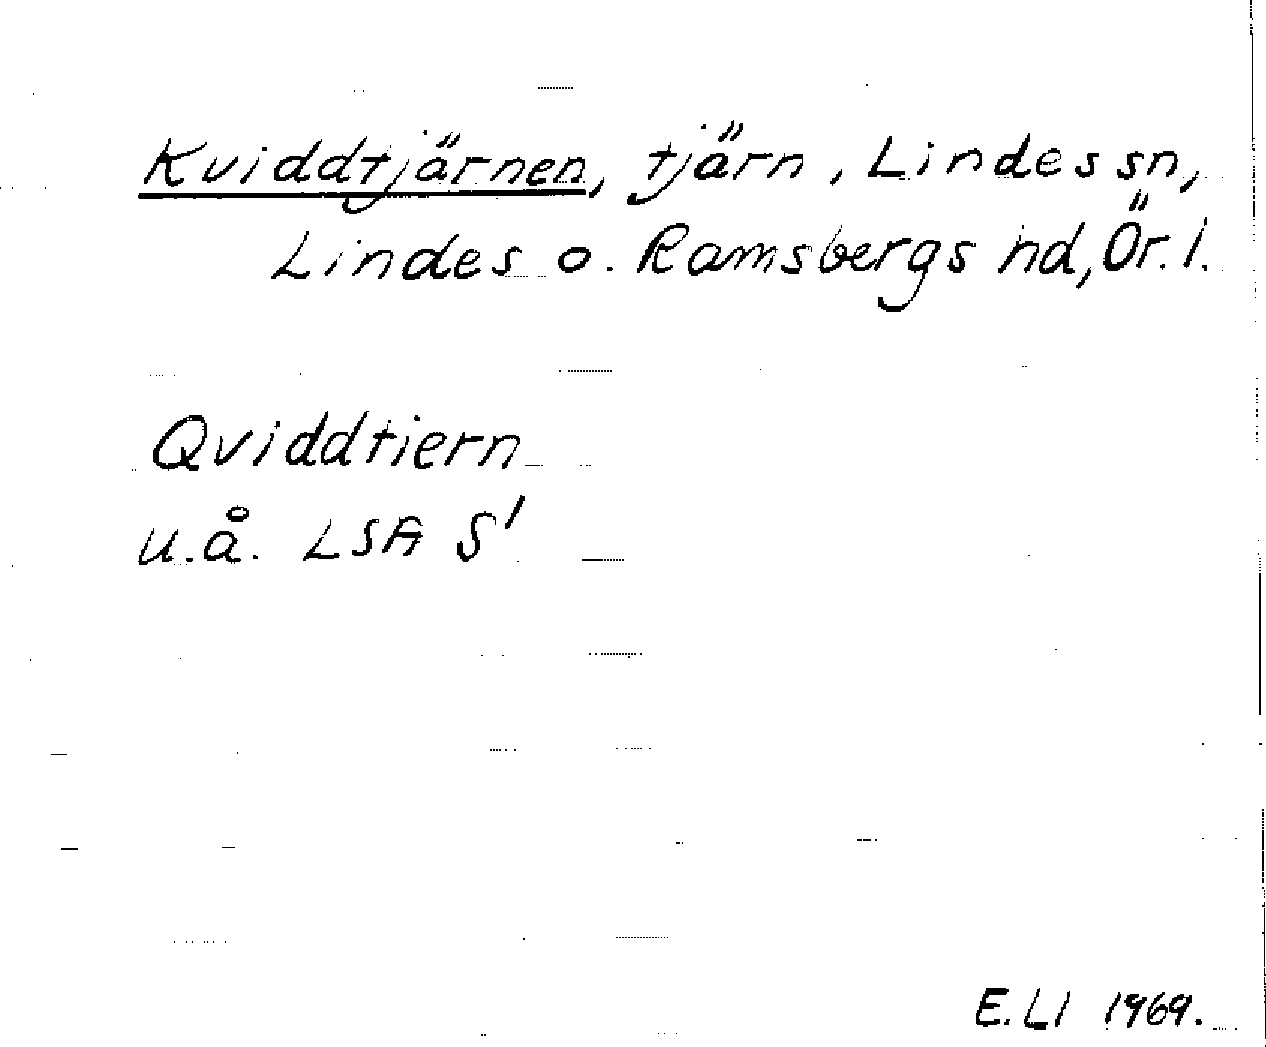 Kviddtjärnen, tjärn, Lindes sn,
Lindes o. Ramsbergs hd, Ör. l.
Qviddtiern
u.å. LSA S'
E. Ll 1969.